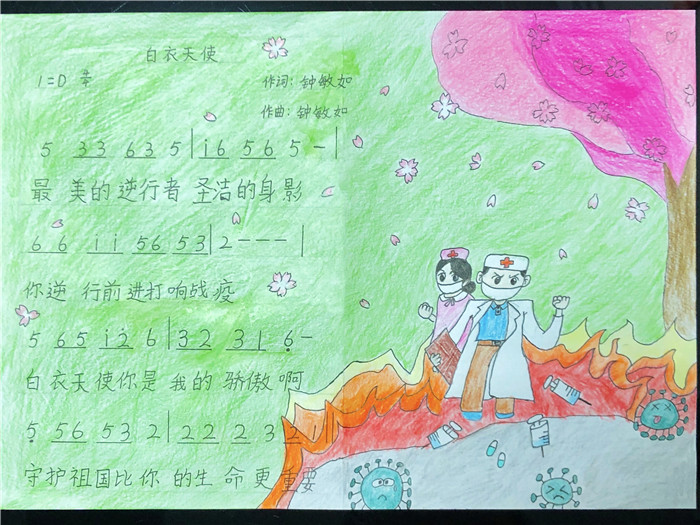 白衣天使
1=D 2/4
作词:钟敏如
作曲:钟敏如
5 33 63 5|i6 56 5 -|
最 美的逆行者 圣洁的身影
66 ii 56 53|2 - - - |
你逆 行前进打响战疫
5 65 i2 6|32 31 6 -
白衣天使你是 我的 骄傲啊
5 56 53 2|22 2 32 1‖
守护祖国比你 的生 命更重要